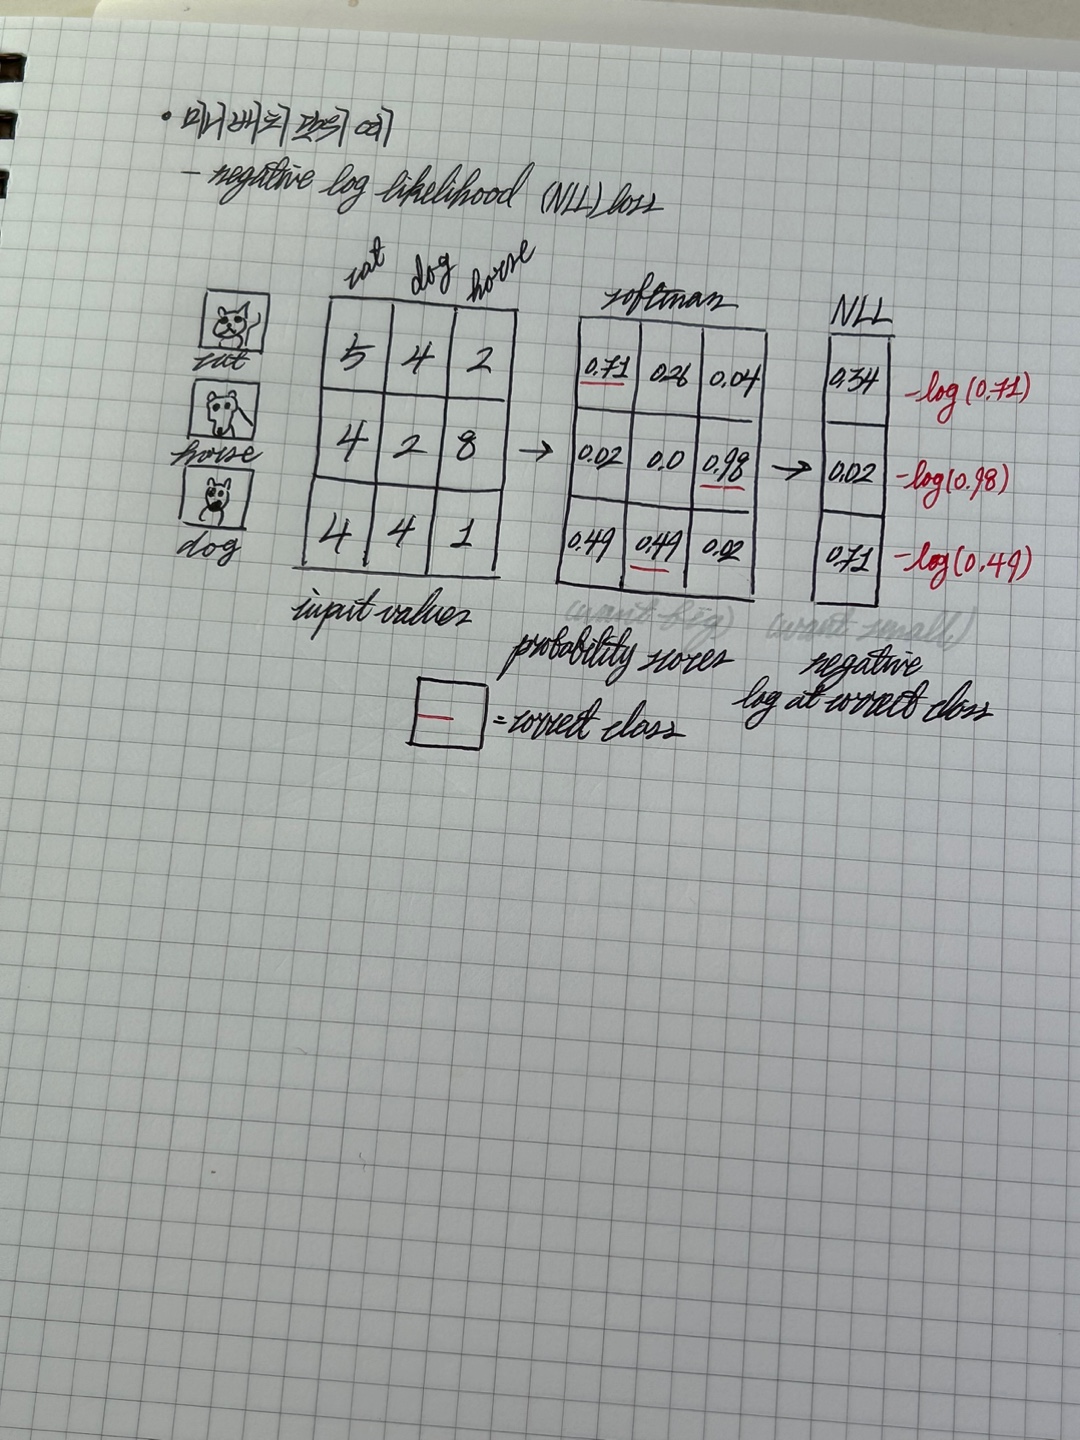 • 미니배치 단위 예
- negative log likelihood (NLL) loss
cat dog horse
softmax
NLL
cat
5 4 2
0.71 0.26 0.04
0.34
-log(0.71)
horse
4 2 8
→
0.02 0.0 0.98
→
0.02
-log(0.98)
dog
4 4 1
0.49 0.49 0.02
0.71
-log(0.49)
input values
(want big)
(want small)
probability scores
negative
log at correct class
= correct class